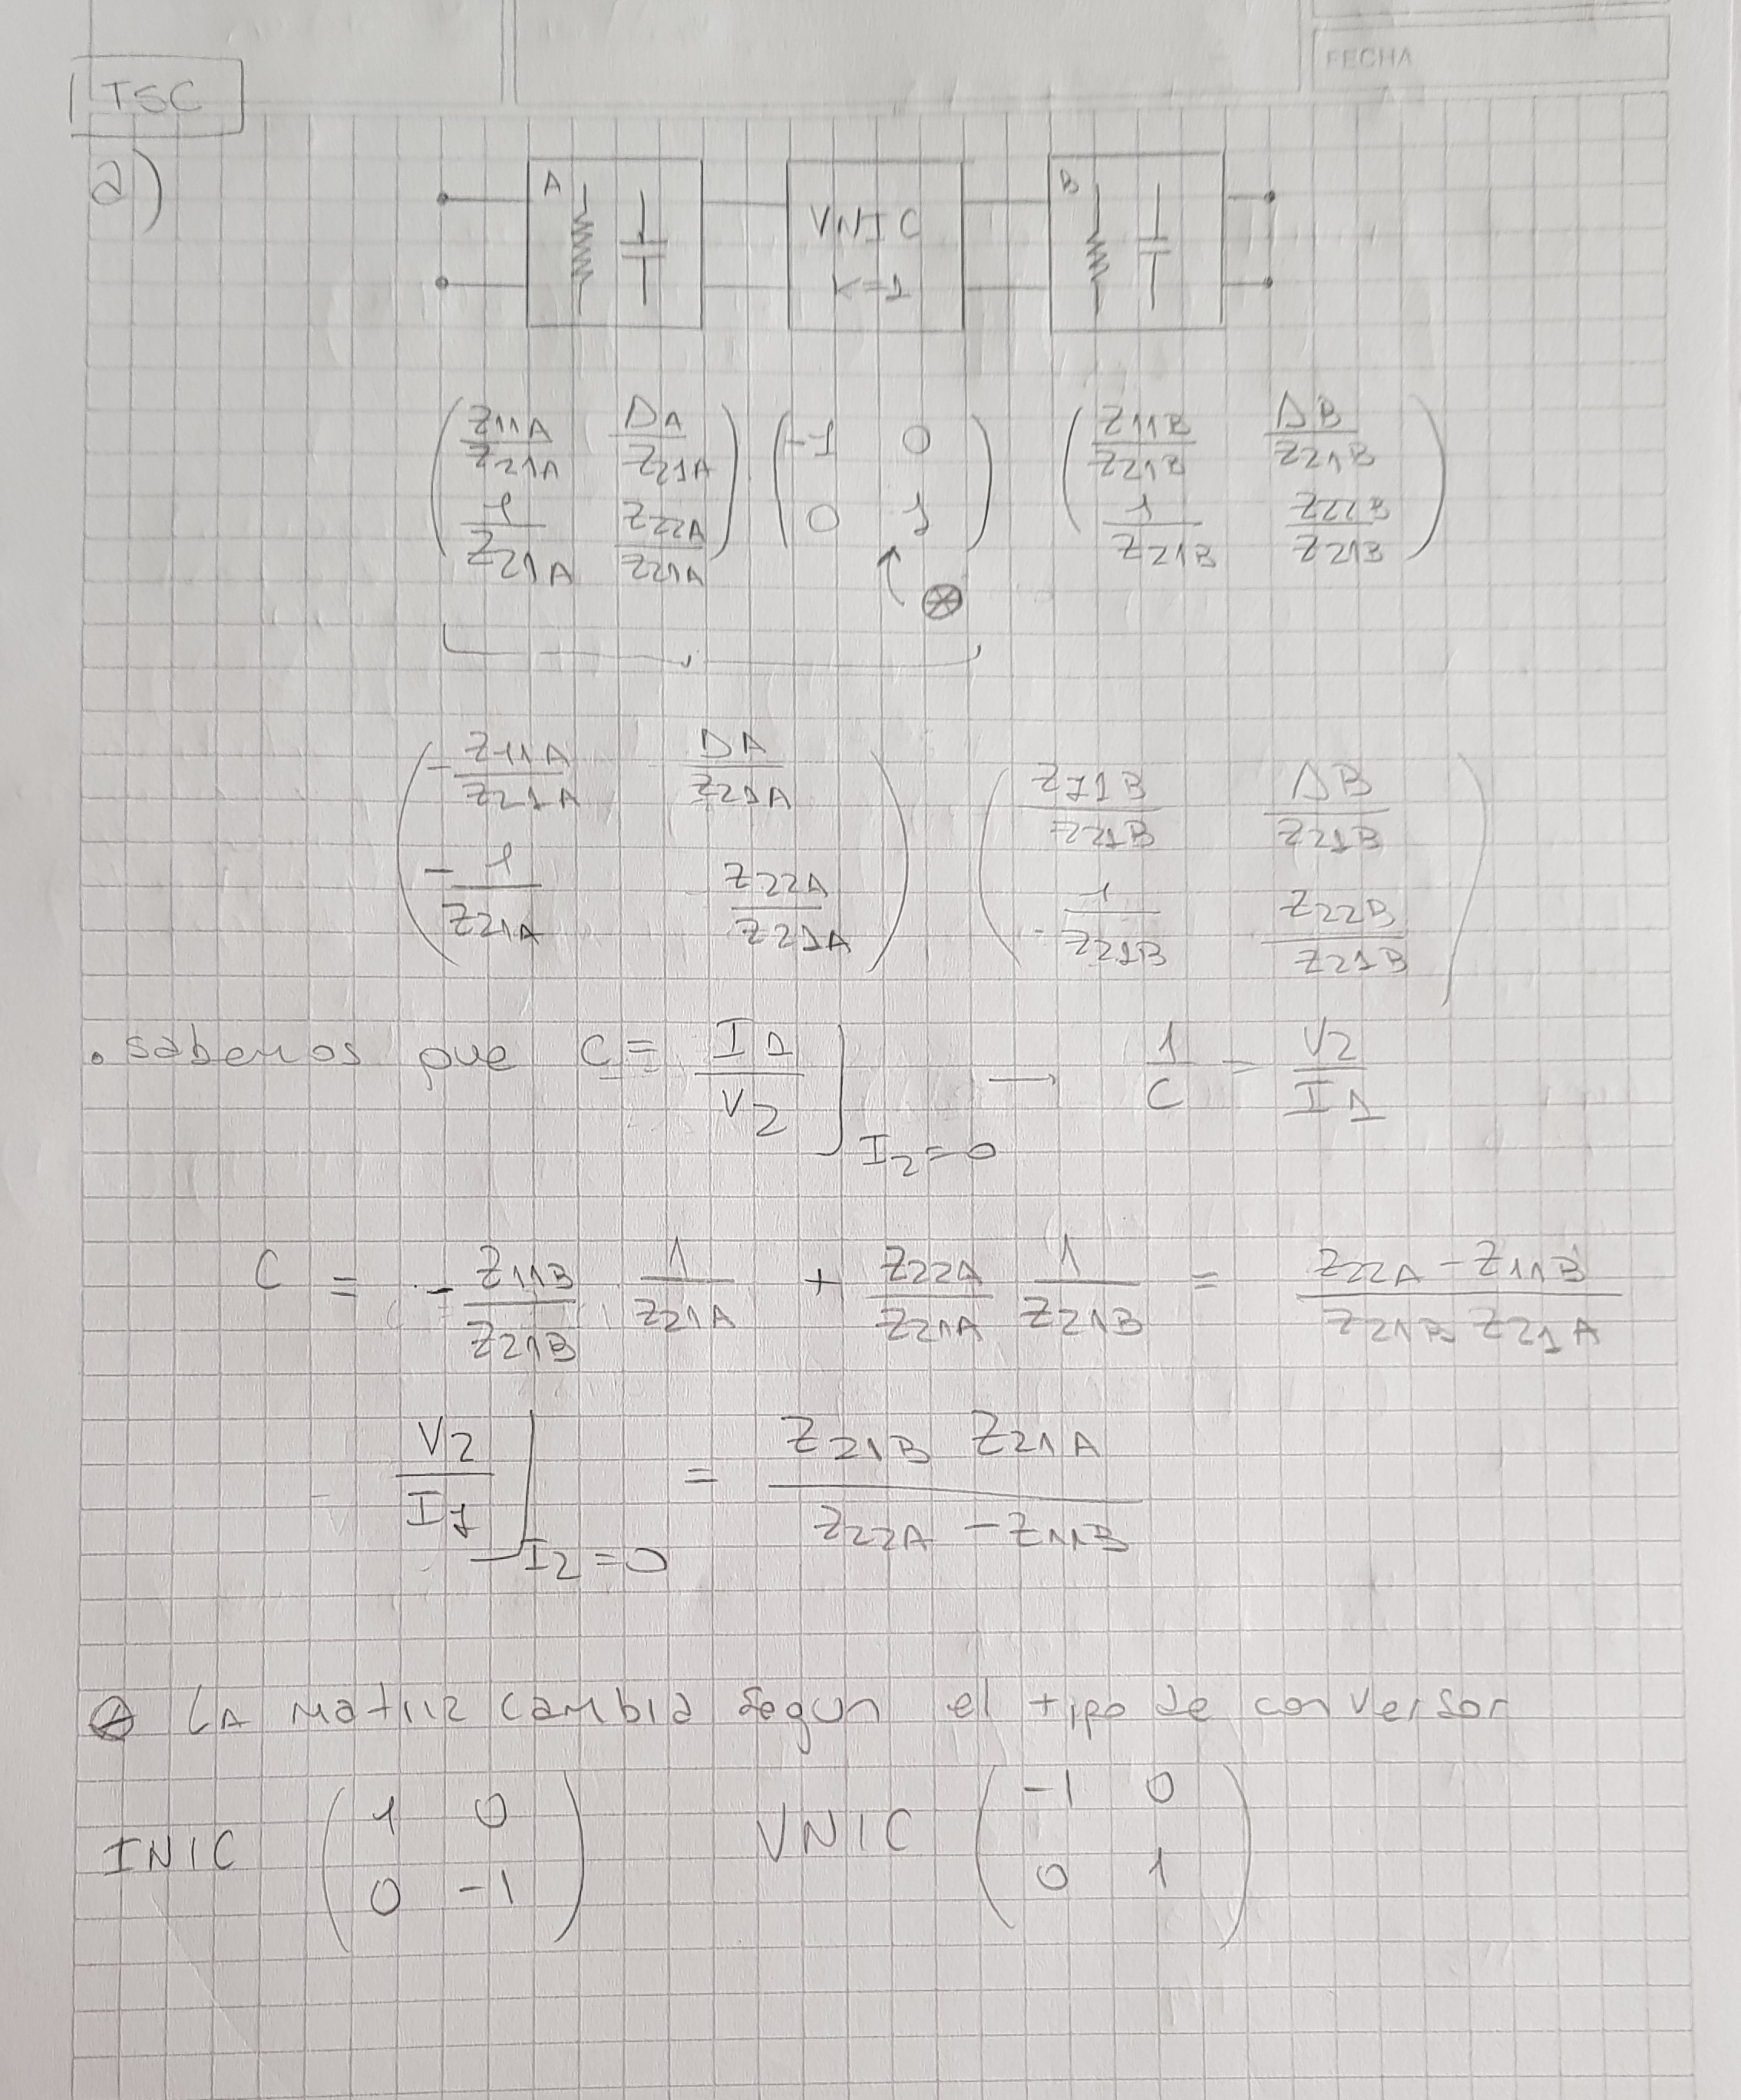 FECHA
TSC
a)
A VNIC K=1 B
( Z11A/Z21A ΔA/Z21A ; 1/Z21A Z22A/Z21A ) · ( -1 0 ; 0 1 ) ( Z11B/Z21B ΔB/Z21B ; 1/Z21B Z22B/Z21B )
⊗
( -Z11A/Z21A ΔA/Z21A ; -1/Z21A Z22A/Z21A ) ( Z11B/Z21B ΔB/Z21B ; 1/Z21B Z22B/Z21B )
. sabemos que C = I1/V2 ]I2=0 → 1/C = V2/I1
C = -Z11B/Z21B · 1/Z21A + Z22A/Z21A 1/Z21B = (Z22A - Z11B)/(Z21B Z21A)
V2/I1 ]I2=0 = (Z21B Z21A)/(Z22A - Z11B)
⊗ LA Matriz cambia segun el tipo de conversor
INIC ( 1 0 ; 0 -1 ) VNIC ( -1 0 ; 0 1 )